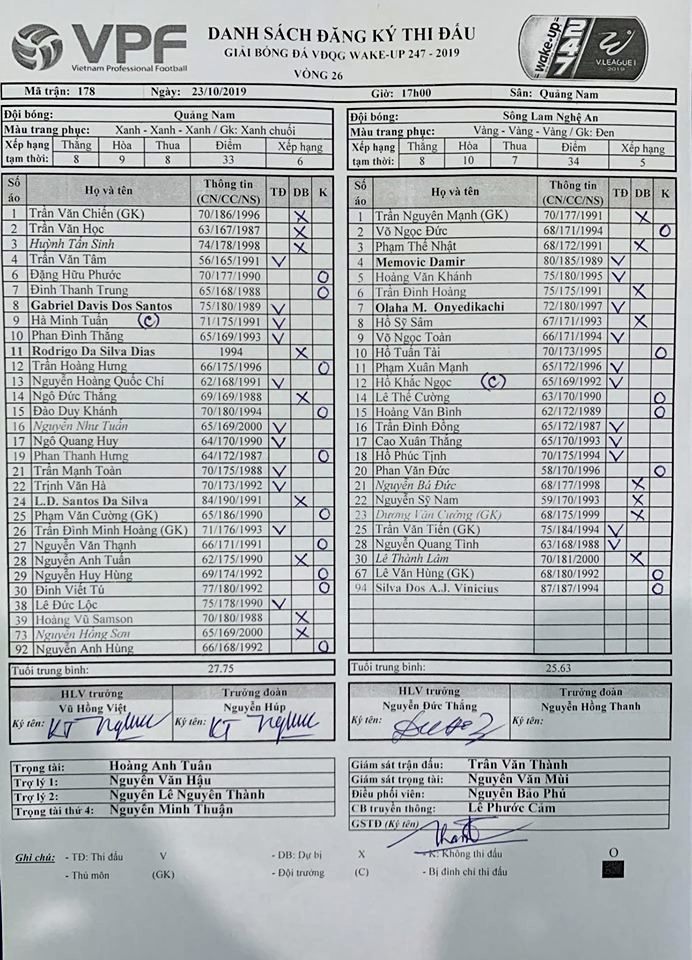 VPF
Vietnam Professional Football
DANH SÁCH ĐĂNG KÝ THI ĐẤU
GIẢI BÓNG ĐÁ VĐQG WAKE-UP 247 - 2019
VÒNG 26
wake-up 247
V.LEAGUE 1
2019
Mã trận: 178 Ngày: 23/10/2019 Giờ: 17h00 Sân: Quảng Nam
Đội bóng: Quảng Nam
Màu trang phục: Xanh - Xanh - Xanh / Gk: Xanh chuối
Xếp hạng tạm thời: Thắng Hòa Thua Điểm Xếp hạng
8 9 8 33 6
Số áo Họ và tên Thông tin (CN/CC/NS) TĐ DB K
1 Trần Văn Chiến (GK) 70/186/1996 X
2 Trần Văn Học 63/167/1987 X
3 Huỳnh Tấn Sinh 74/178/1998 X
4 Trần Văn Tâm 56/165/1991 V
6 Đặng Hữu Phước 70/177/1990 O
7 Đinh Thanh Trung 65/168/1988 O
8 Gabriel Davis Dos Santos 75/180/1989 V
9 Hà Minh Tuấn (C) 71/175/1991 V
10 Phan Đình Thắng 65/169/1993 V
11 Rodrigo Da Silva Dias 1994 X
12 Trần Hoàng Hưng 66/175/1996 O
13 Nguyễn Hoàng Quốc Chí 62/168/1991 V
14 Ngô Đức Thắng 69/169/1988 X
15 Đào Duy Khánh 70/180/1994 O
16 Nguyễn Như Tuấn 65/169/2000 V
17 Ngô Quang Huy 64/170/1990 V
19 Phan Thanh Hưng 64/172/1987 O
21 Trần Mạnh Toàn 70/175/1988 V
22 Trịnh Văn Hà 70/173/1992 V
24 L.D. Santos Da Silva 84/190/1991 X
25 Phạm Văn Cường (GK) 65/186/1990 O
26 Trần Đình Minh Hoàng (GK) 71/176/1993 V
27 Nguyễn Văn Thạnh 66/171/1991 O
28 Nguyễn Anh Tuấn 62/175/1990 X
29 Nguyễn Huy Hùng 69/174/1992 O
30 Đinh Viết Tú 77/180/1992 O
38 Lê Đức Lộc 75/178/1990 V
39 Hoàng Vũ Samson 70/180/1988 X
73 Nguyễn Hồng Sơn 65/169/2000 X
92 Nguyễn Anh Hùng 66/168/1992 O
Tuổi trung bình: 27.75
HLV trưởng Trưởng đoàn
Vũ Hồng Việt Nguyễn Húp
Ký tên: Ký tên:
Đội bóng: Sông Lam Nghệ An
Màu trang phục: Vàng - Vàng - Vàng / Gk: Đen
Xếp hạng tạm thời: Thắng Hòa Thua Điểm Xếp hạng
8 10 7 34 5
Số áo Họ và tên Thông tin (CN/CC/NS) TĐ DB K
1 Trần Nguyên Mạnh (GK) 70/177/1991 X
2 Võ Ngọc Đức 68/171/1994 O
3 Phạm Thế Nhật 68/172/1991 X
4 Memovic Damir 80/185/1989 V
5 Hoàng Văn Khánh 75/180/1995 V
6 Trần Đình Hoàng 75/175/1991 X
7 Olaha M. Onyedikachi 72/180/1997 V
8 Hồ Sỹ Sâm 67/171/1993 X
9 Võ Ngọc Toàn 66/171/1994 V
10 Hồ Tuấn Tài 70/173/1995 O
11 Phạm Xuân Mạnh 65/172/1996 V
12 Hồ Khắc Ngọc (C) 65/169/1992 V
14 Lê Thế Cường 63/170/1990 O
15 Hoàng Văn Bình 62/172/1989 O
16 Trần Đình Đồng 65/172/1987 V
17 Cao Xuân Thắng 65/170/1993 V
18 Hồ Phúc Tịnh 70/175/1994 V
20 Phan Văn Đức 58/170/1996 O
21 Nguyễn Bá Đức 68/177/1998 X
22 Nguyễn Sỹ Nam 59/170/1993 X
23 Dương Văn Cường (GK) 68/175/1999 X
25 Trần Văn Tiến (GK) 75/184/1994 V
28 Nguyễn Quang Tình 63/168/1988 V
30 Lê Thành Lâm 70/181/2000 X
67 Lê Văn Hùng (GK) 68/180/1992 O
94 Silva Dos A.J. Vinicius 87/187/1994 O
Tuổi trung bình: 25.63
HLV trưởng Trưởng đoàn
Nguyễn Đức Thắng Nguyễn Hồng Thanh
Ký tên: Ký tên:
Trọng tài: Hoàng Anh Tuấn
Trợ lý 1: Nguyễn Văn Hậu
Trợ lý 2: Nguyễn Lê Nguyên Thành
Trọng tài thứ 4: Nguyễn Minh Thuận
Giám sát trận đấu: Trần Văn Thành
Giám sát trọng tài: Nguyễn Văn Mùi
Điều phối viên: Nguyễn Bảo Phú
CB truyền thông: Lê Phước Cẩm
GSTĐ (Ký tên)
Ghi chú: - TĐ: Thi đấu V - DB: Dự bị X - K: Không thi đấu O
- Thủ môn (GK) - Đội trưởng (C) - Bị đình chỉ thi đấu